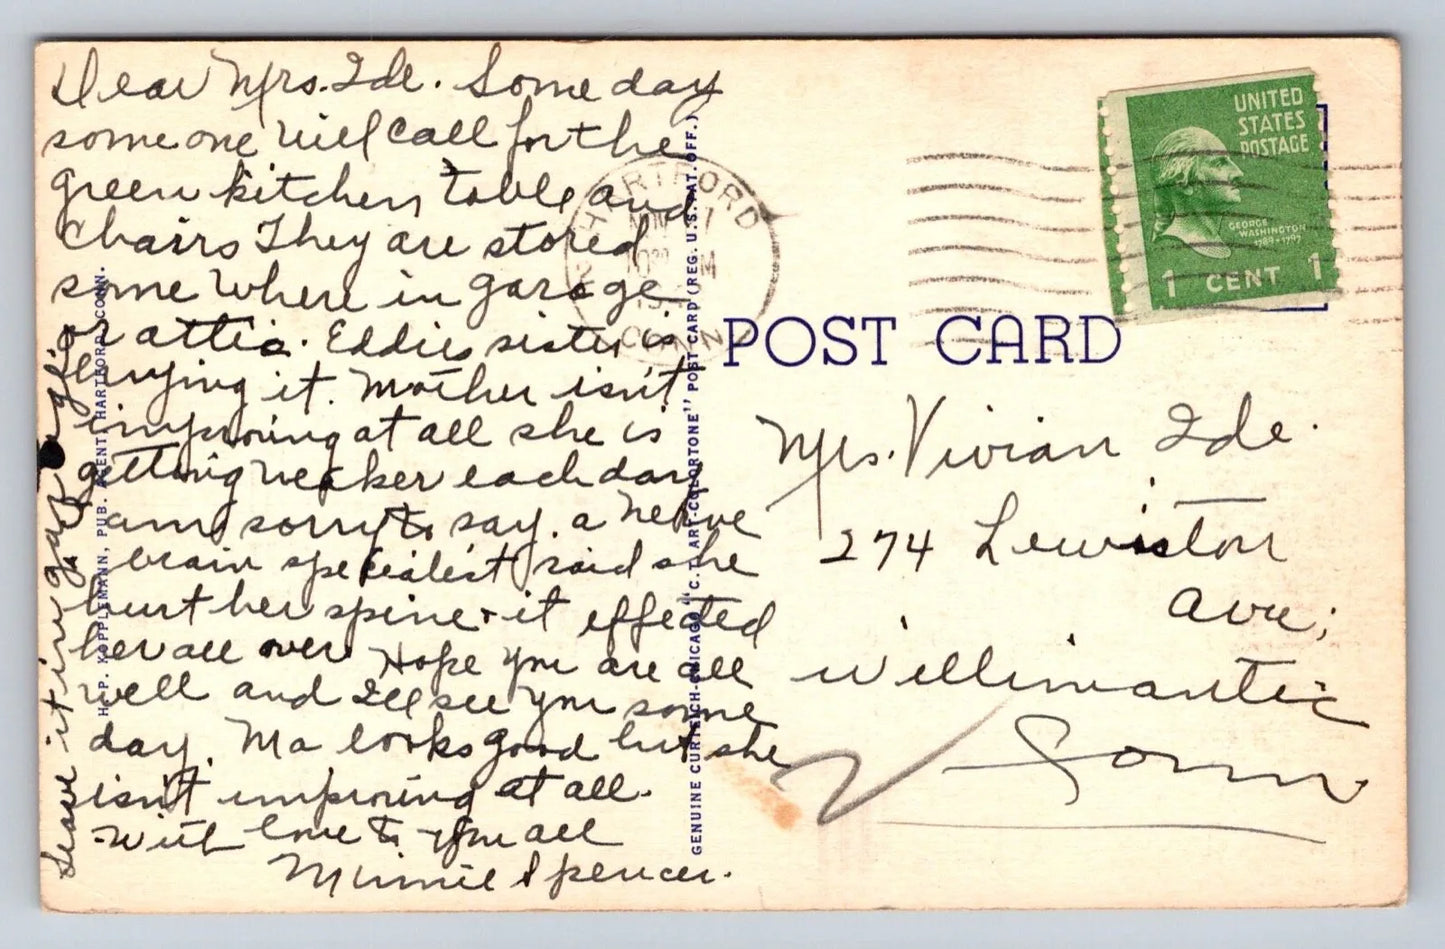 Dear Mrs. Ide. Some day
some one will call for the
green kitchen table and
Chairs They are stored
some where in garage
or attic. Eddies sister is
buying it. Mother isn't
improving at all she is
getting weaker each day
am sorry to say. a nerve
brain specialist said she
hurt her spine & it effected
her all over Hope you are all
well and I'll see you some
day. Ma looks good but she
isn't improving at all.
with love to you all
Minnie Spencer.
Leave it in garage
H. P. KOPPLEMANN, PUB. AGENT, HARTFORD, CONN.
GENUINE CURTEICH-CHICAGO "C. T. ART-COLORTONE" POST CARD (REG. U.S. PAT. OFF.)
HARTFORD
CONN
UNITED
STATES
POSTAGE
GEORGE
WASHINGTON
1789-1797
1 CENT 1
POST CARD
Mrs. Vivian Ide.
274 Lewiston
Ave;
Willimantic
Conn